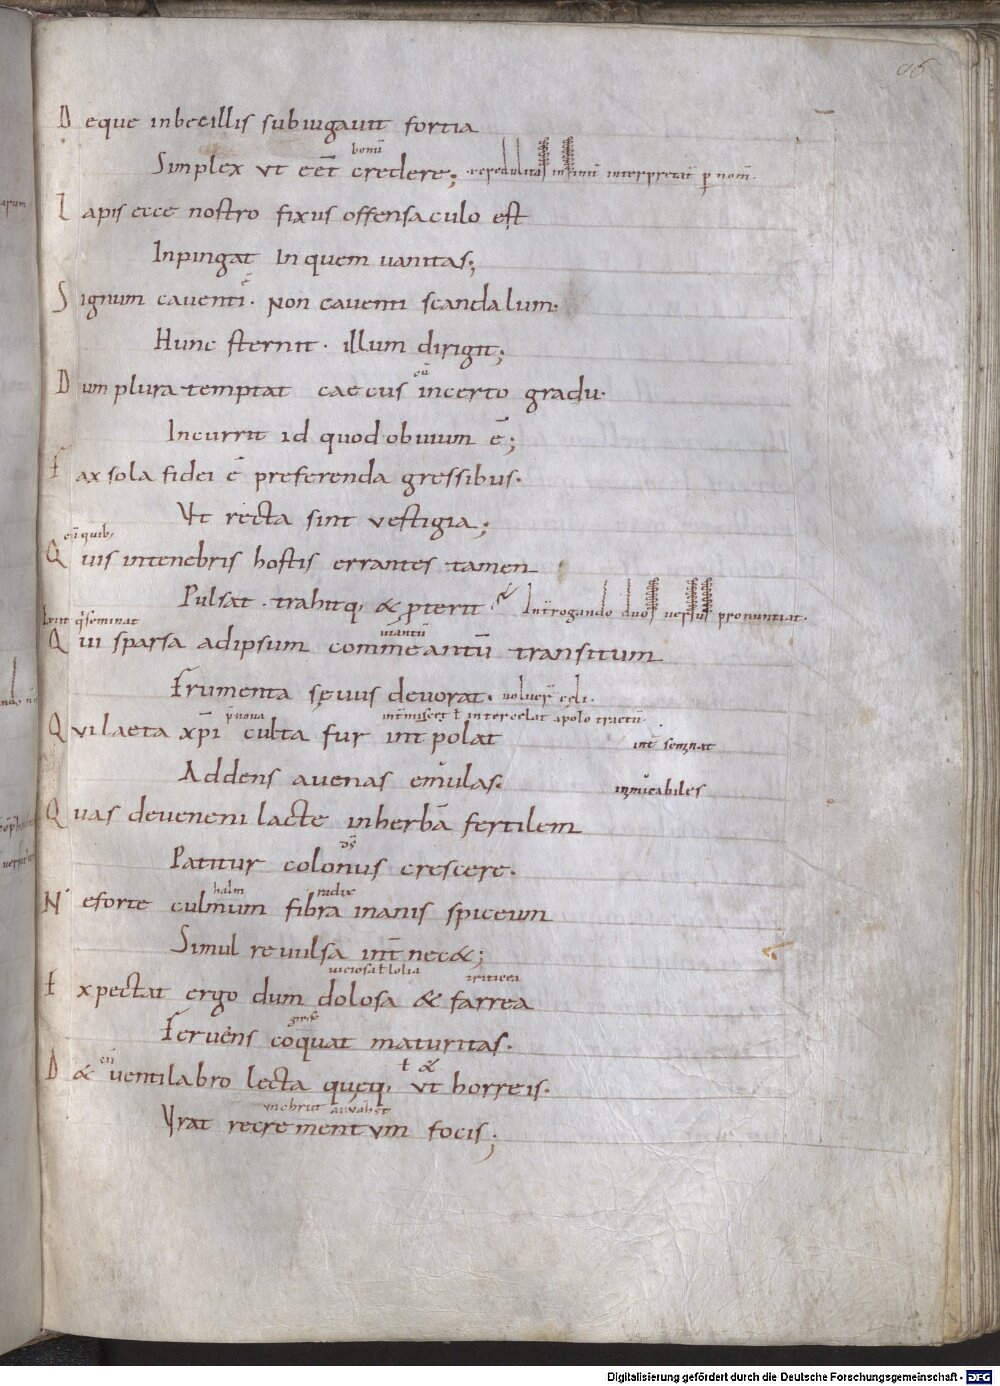 96
Deque inbecillis subiugauit fortia
bonū
Simplex vt eēt credere;
interpretat̄ ꝑ nom̄.
Lapis ecce nostro fixus offensaculo est
Inpingat in quem uanitas;
Signum cauenti. Non cauenti scandalum.
Hunc sternit. illum dirigit;
Dum plura temptat caecus incerto gradu.
Incurrit id quod obuium ē;
Fax sola fidei ē preferenda gressibus.
Vt recta sint vestigia;
Quis intenebris hostis errantes tamen
Pulsat. trahitq; & p̄terit
Int̄rogando duos versus pronuntiat.
Qui sparsa adipsum commeantū transitum
Frumenta sęuus deuorat. uolucr̄ cęli.
Qvi laeta xp̄i culta fur int̄polat
int̄ semnat
Addens auenas emulas.
Quas deueneni lacte inherbā fertilem
d̄s
Patitur colonus crescere.
halm radix
Neforte culmum fibra inanis spiceum
Simul reuulsa int̄nec&;
uiciosa ł lolia triticea
Expectat ergo dum dolosa & farrea
Feruens coquat maturitas.
ł &
D& uentilabro lecta quęq; vt horreis.
Vrat recrementvm focis;
Digitalisierung gefördert durch die Deutsche Forschungsgemeinschaft - DFG